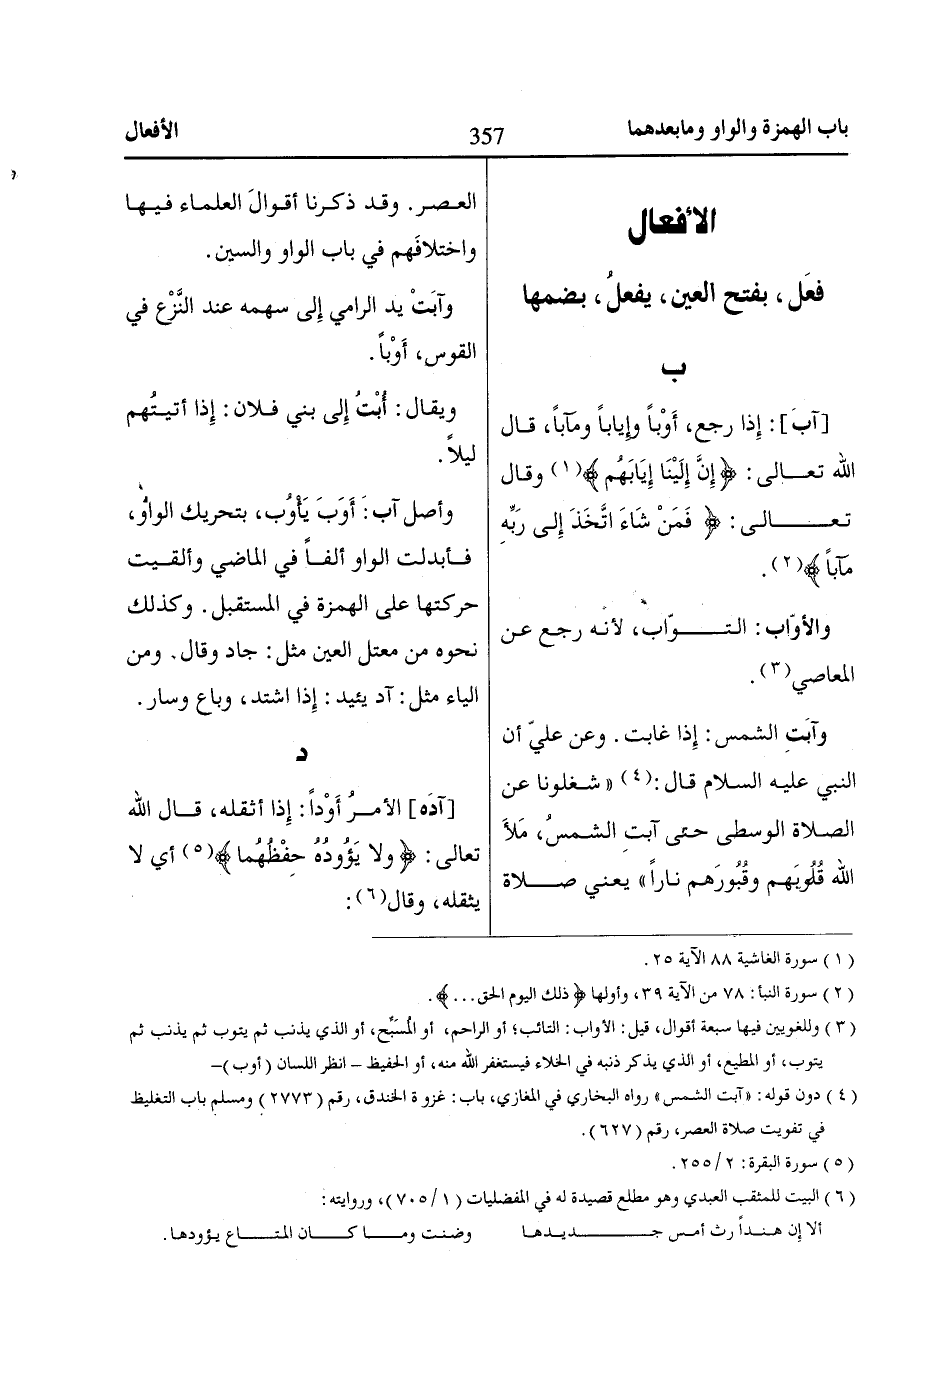 باب الهمزة والواو ومابعدهما
357
الأفعال
الأفعال
فعَل، بفتح العين، يفعلُ، بضمها
ب
[آبَ]: إذا رجع، أَوْباً وإياباً ومآباً، قال
الله تعالى: ﴿إِنَّ إِلَيْنَا إِيَابَهُم﴾(١) وقال
تعالى: ﴿فَمَنْ شَاءَ اتَّخَذَ إِلى رَبِّه
مآباً﴾(٢).
والأوّاب: التوّاب، لأنه رجع عن
المعاصي(٣).
وآبَتِ الشمس: إذا غابت. وعن عليّ أن
النبي عليه السلام قال:(٤) «شغلونا عن
الصلاة الوسطى حتى آبت الشمسُ، مَلأَ
الله قُلُوبَهم وقُبُورَهم ناراً» يعني صلاة
العصر. وقد ذكرنا أقوالَ العلماء فيها
واختلافَهم في باب الواو والسين.
وآبَتْ يد الرامي إلى سهمه عند النَّزْع في
القوس، أَوْباً.
ويقال: أُبْتُ إلى بني فلان: إذا أتيتُهم
ليلاً.
وأصل آب: أَوَبَ يَأْوُب، بتحريك الواو،
فأبدلت الواو ألفاً في الماضي وألقيت
حركتها على الهمزة في المستقبل. وكذلك
نحوه من معتل العين مثل: جاد وقال. ومن
الياء مثل: آد يئيد: إذا اشتد، وباع وسار.
د
[آدَه] الأمرُ أَوْداً: إذا أثقله، قال الله
تعالى: ﴿ولا يَؤُودُهُ حِفْظُهُما﴾(٥) أي لا
يثقله، وقال(٦):
(١) سورة الغاشية ٨٨ الآية ٢٥.
(٢) سورة النبأ: ٧٨ من الآية ٣٩، وأولها ﴿ذلك اليوم الحق...﴾.
(٣) وللغويين فيها سبعة أقوال، قيل: الأواب: التائب؛ أو الراحم، أو المُسَبِّح، أو الذي يذنب ثم يتوب ثم يذنب ثم
يتوب، أو المطيع، أو الذي يذكر ذنبه في الخلاء فيستغفر الله منه، أو الحفيظ – انظر اللسان (أوب)–
(٤) دون قوله: «آبت الشمس» رواه البخاري في المغازي، باب: غزوة الخندق، رقم (٢٧٧٣) ومسلم باب التغليظ
في تفويت صلاة العصر، رقم (٦٢٧).
(٥) سورة البقرة: ٢٥٥/٢.
(٦) البيت للمثقب العبدي وهو مطلع قصيدة له في المفضليات (٧٠٥/١)، وروايته:
ألا إن هنداً رث أمس جديدها وضنت وما كان المتاع يؤودها.